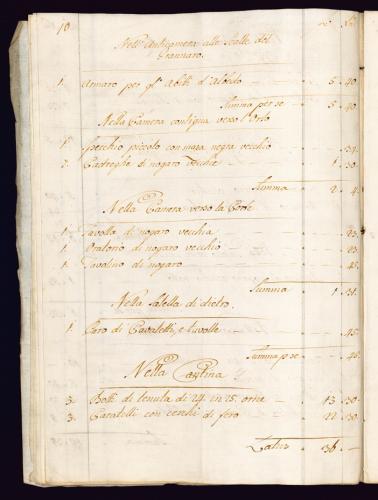 10
Nell'Anticamera alle Scalle del
Grannaro.
1. Armaro per gl'Abiti d'Abedo — 5. 40.
Summa per se 5. 40
Nella Camera contigua verso l'Orto
1. Specchio picolo con negra vecchio — 34.
2. Cadreghe di nogaro Vechie — 1. 30.
Summa 2. 4.
Nella Camera verso la Corte
1. Tavolla di nogaro vecchia — 23.
1. Oratorio di nogaro vecchio — 23.
1. Tavolino di nogaro — 45.
Summa 1. 31.
Nella Saletta di dietro.
1. Paro di Cavaletti, e tavolle — 45.
Summa p se 45.
Nella Cantina
3. Botti di tenuta di 24 in 25. orne — 13. 30.
3. Caratelli con cerchi di fero — 22. 30.
Latus 36.